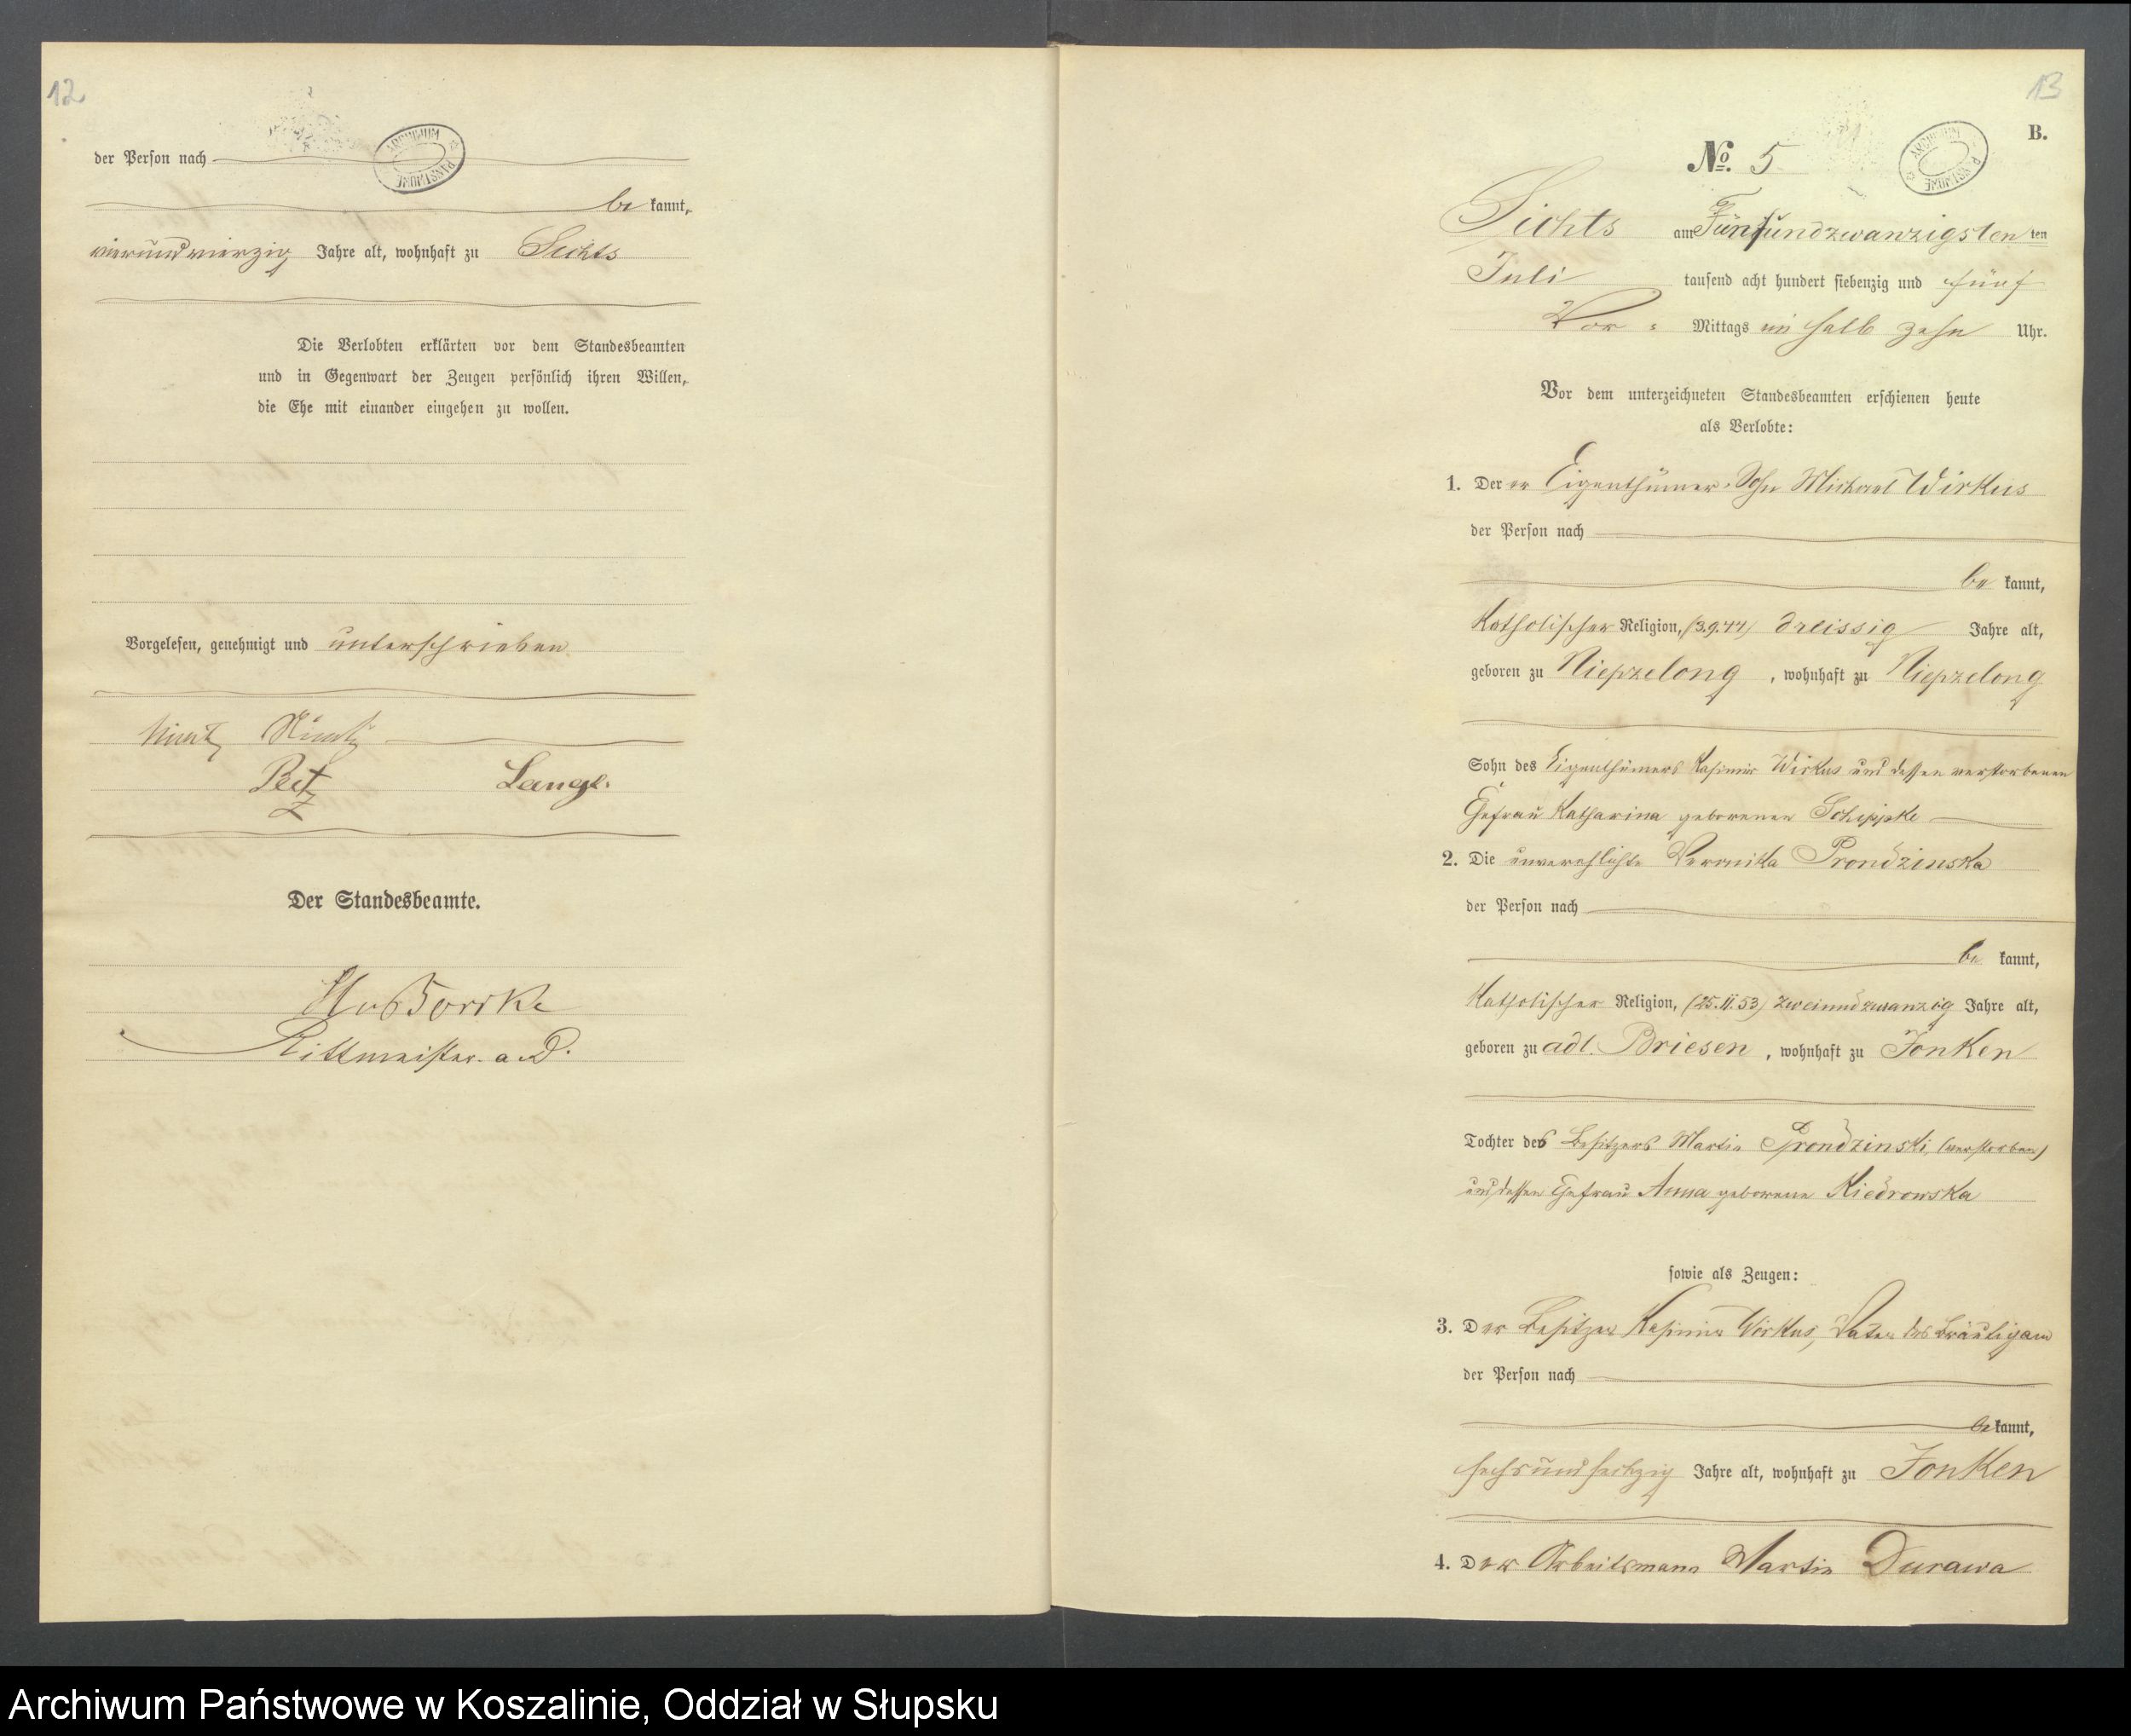 12
der Person nach
ARCHIWUM PAŃSTWOWE
be kannt,
vierundvierzig Jahre alt, wohnhaft zu Sichts
Die Verlobten erklärten vor dem Standesbeamten
und in Gegenwart der Zeugen persönlich ihren Willen,
die Ehe mit einander eingehen zu wollen.
Vorgelesen, genehmigt und unterschrieben
Lange.
Der Standesbeamte.
Rittmeister a. D.
13
B.
ARCHIWUM PAŃSTWOWE
No. 5
Sichts am Fünfundzwanzigsten ten
Juli tausend acht hundert siebenzig und fünf
Vor = Mittags um halb zehn Uhr.
Vor dem unterzeichneten Standesbeamten erschienen heute
als Verlobte:
1. Der er Eigenthümer-Sohn Michael Wirkus
der Person nach
be kannt,
Katholischer Religion, (3.9.44) dreissig Jahre alt,
geboren zu Niepzelong, wohnhaft zu Niepzelong
Sohn des Eigenthümers Kasimir Wirkus und dessen verstorbenen
Ehefrau Katharina geborenen Schippke
2. Die unverehlichte Veronika Prondzinska
der Person nach
be kannt,
Katholischer Religion, (25.11.53) zweiundzwanzig Jahre alt,
geboren zu adl. Briesen, wohnhaft zu Jonken
Tochter des Besitzers Martin Prondzinski, (verstorben)
und dessen Ehefrau Anna geborene Kiedrowska
sowie als Zeugen:
3. Der Besitzer Kasimir Wirkus, Vater des Bräutigam
der Person nach
bekannt,
sechsundsechzig Jahre alt, wohnhaft zu Jonken
4. Der Arbeitsmann Martin Durawa
Archiwum Państwowe w Koszalinie, Oddział w Słupsku